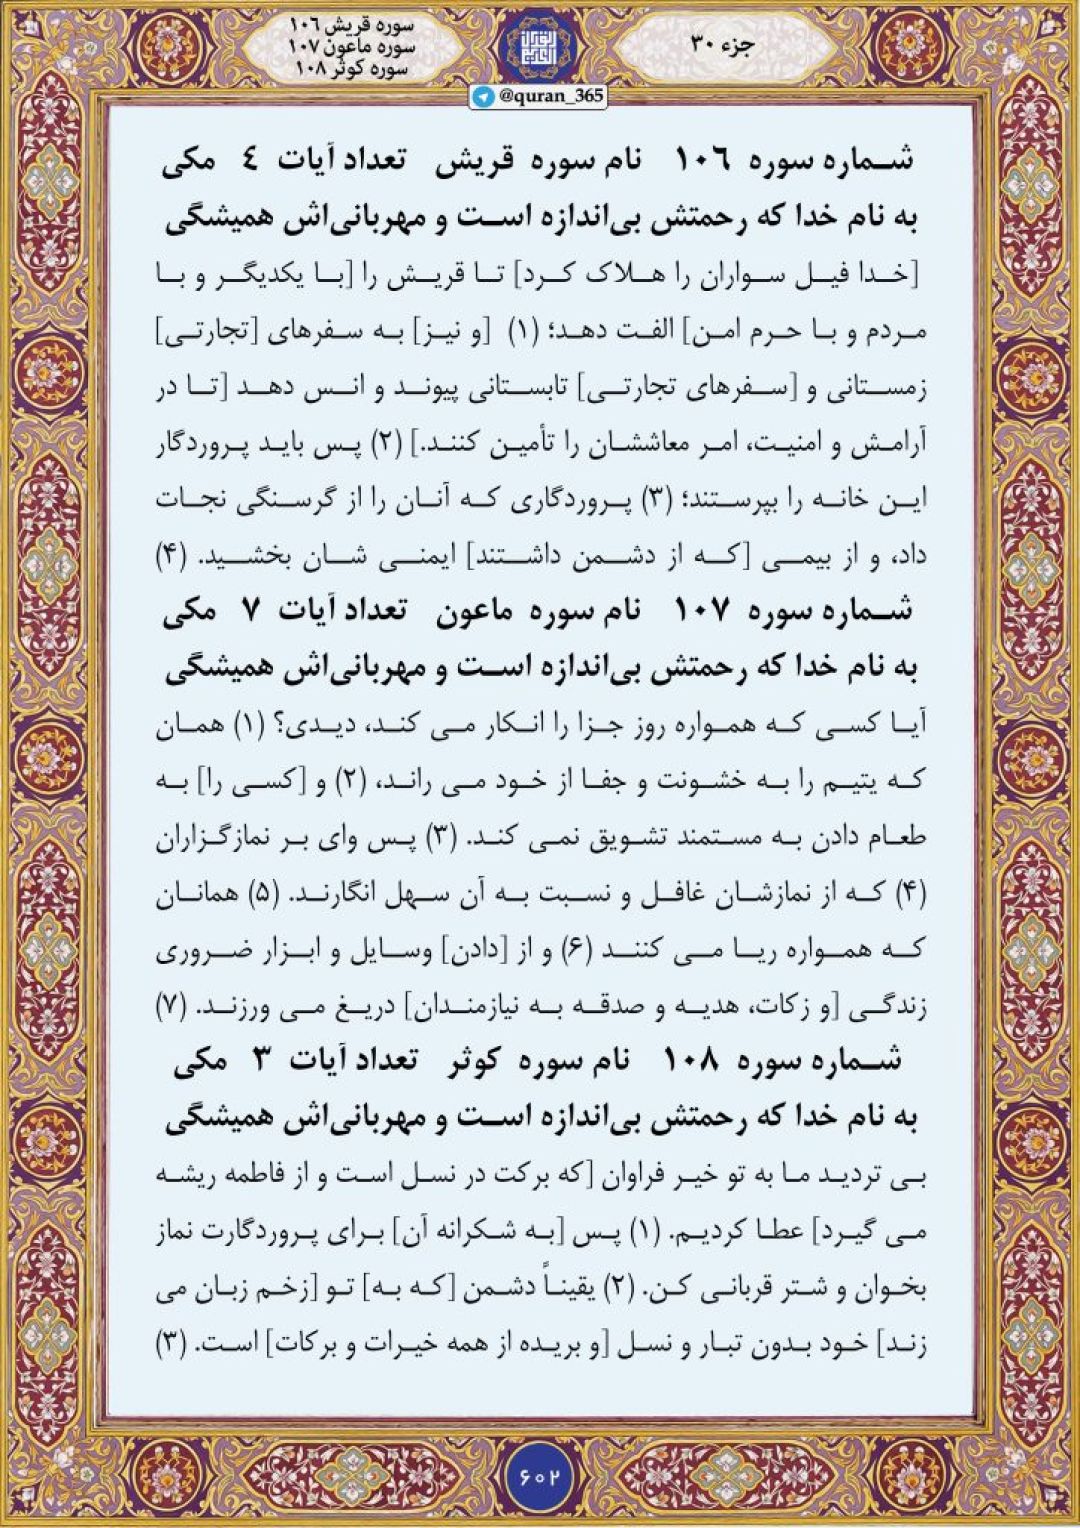 جزء ۳۰
سوره قریش ۱۰۶
سوره ماعون ۱۰۷
سوره کوثر ۱۰۸
@quran_365
شماره سوره ۱۰۶ نام سوره قریش تعداد آیات ٤ مکی
به نام خدا که رحمتش بی‌اندازه است و مهربانی‌اش همیشگی
[خدا فیل سواران را هلاک کرد] تا قریش را [با یکدیگر و با
مردم و با حرم امن] الفت دهد؛ (۱) [و نیز] به سفرهای [تجارتی]
زمستانی و [سفرهای تجارتی] تابستانی پیوند و انس دهد [تا در
آرامش و امنیت، امر معاششان را تأمین کنند.] (۲) پس باید پروردگار
این خانه را بپرستند؛ (۳) پروردگاری که آنان را از گرسنگی نجات
داد، و از بیمی [که از دشمن داشتند] ایمنی شان بخشید. (۴)
شماره سوره ۱۰۷ نام سوره ماعون تعداد آیات ۷ مکی
به نام خدا که رحمتش بی‌اندازه است و مهربانی‌اش همیشگی
آیا کسی که همواره روز جزا را انکار می کند، دیدی؟ (۱) همان
که یتیم را به خشونت و جفا از خود می راند، (۲) و [کسی را] به
طعام دادن به مستمند تشویق نمی کند. (۳) پس وای بر نمازگزاران
(۴) که از نمازشان غافل و نسبت به آن سهل انگارند. (۵) همانان
که همواره ریا می کنند (۶) و از [دادن] وسایل و ابزار ضروری
زندگی [و زکات، هدیه و صدقه به نیازمندان] دریغ می ورزند. (۷)
شماره سوره ۱۰۸ نام سوره کوثر تعداد آیات ۳ مکی
به نام خدا که رحمتش بی‌اندازه است و مهربانی‌اش همیشگی
بی تردید ما به تو خیر فراوان [که برکت در نسل است و از فاطمه ریشه
می گیرد] عطا کردیم. (۱) پس [به شکرانه آن] برای پروردگارت نماز
بخوان و شتر قربانی کن. (۲) یقیناً دشمن [که به] تو [زخم زبان می
زند] خود بدون تبار و نسل [و بریده از همه خیرات و برکات] است. (۳)
۶۰۲